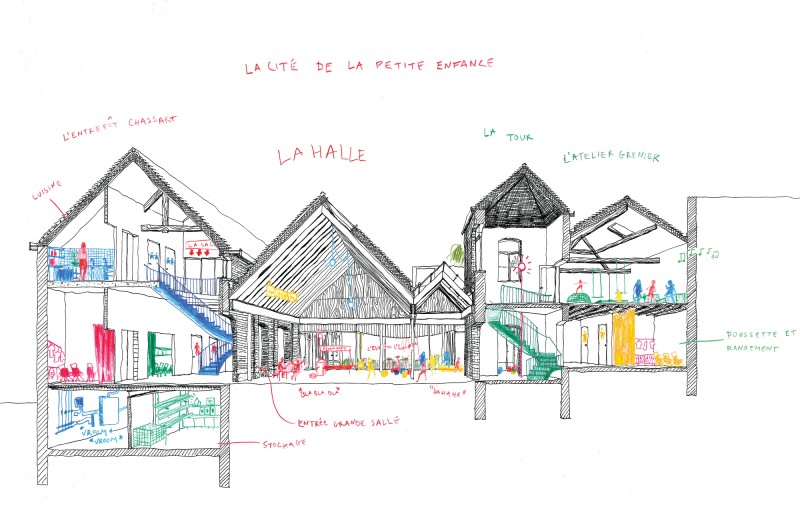 LA CITÉ DE LA PETITE ENFANCE
L'ENTREPÔT CHASSART
LA HALLE
LA TOUR
L'ATELIER GRENIER
CUISINE
LA LA!
POUSSETTE ET
RANGEMENT
"BLA BLA BLI"
"HAHAHA"
ENTRÉE GRANDE SALLE
*VROUM*
*VROOM*
STOCKAGE